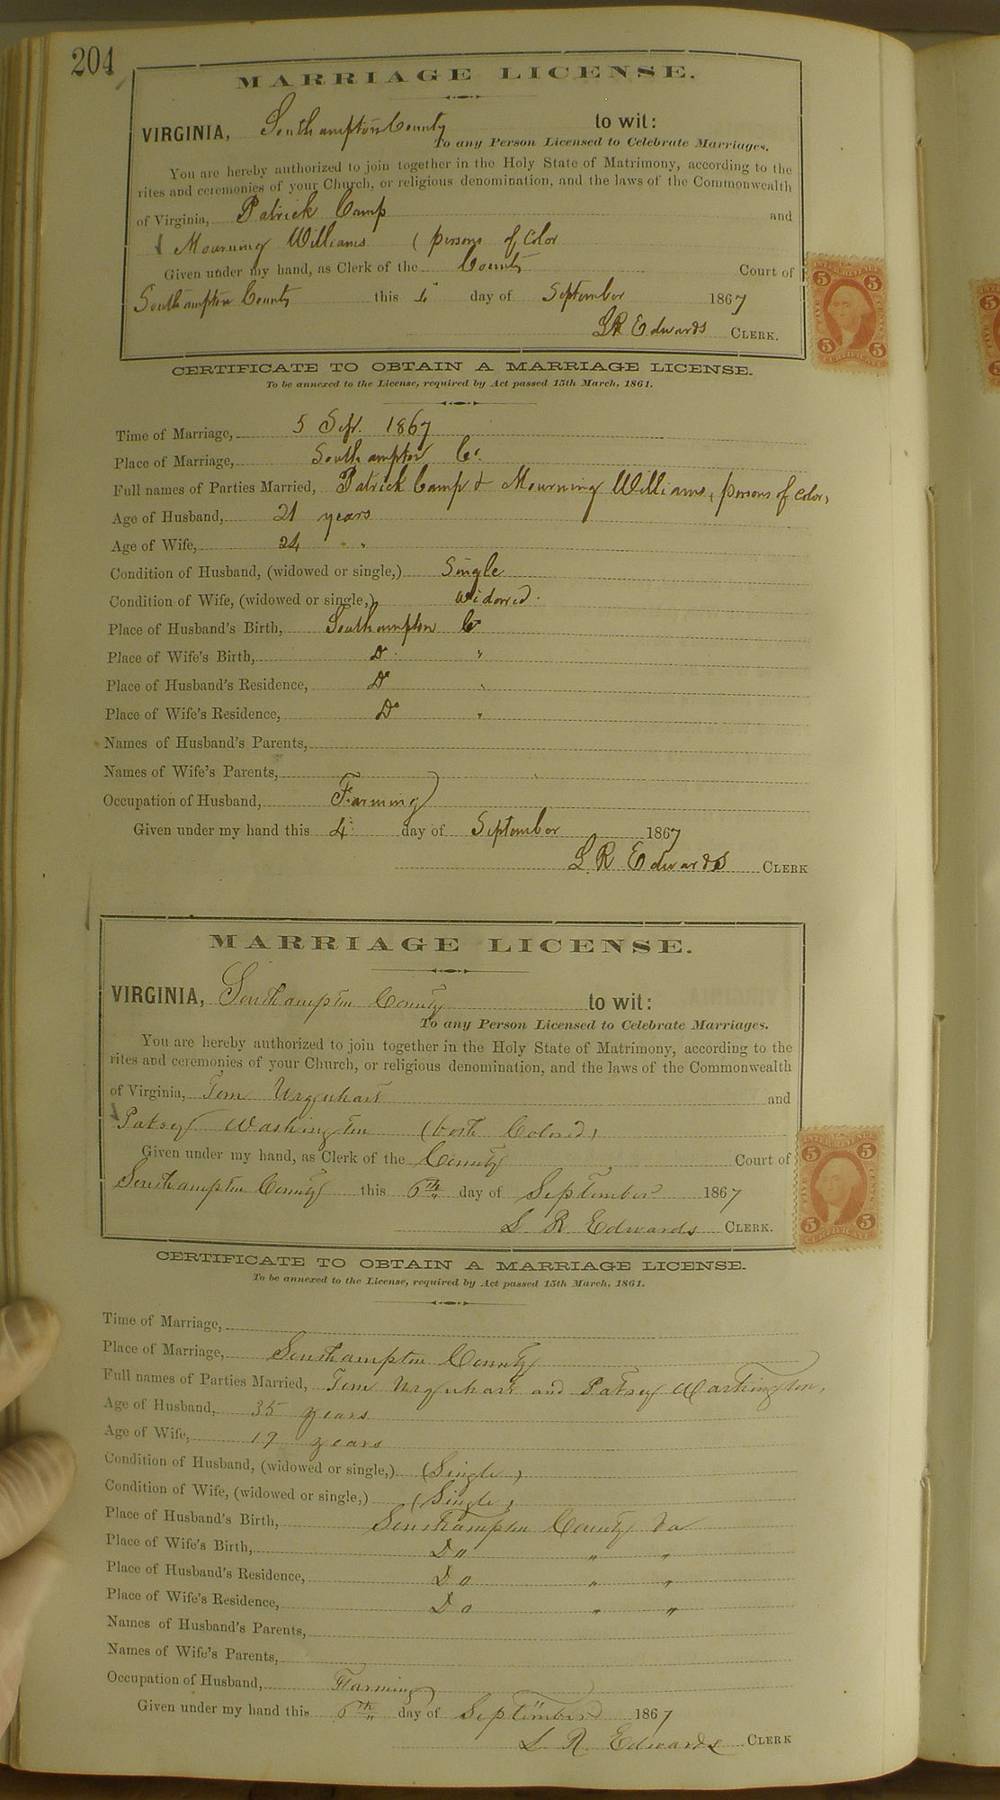 204
MARRIAGE LICENSE.
VIRGINIA, Southampton County to wit:
To any Person Licensed to Celebrate Marriages.
You are hereby authorized to join together in the Holy State of Matrimony, according to the
rites and ceremonies of your Church, or religious denomination, and the laws of the Commonwealth
of Virginia, Patrick Camp and
Mourning Williams ( persons of Color
Given under my hand, as Clerk of the County Court of
Southampton County this 4" day of September 1867
LR Edwards CLERK.
CERTIFICATE TO OBTAIN A MARRIAGE LICENSE.
To be annexed to the License, required by Act passed 15th March, 1861.
Time of Marriage, 5 Sept. 1867
Place of Marriage, Southampton Co.
Full names of Parties Married, Patrick Camp & Mourning Williams, persons of Color,
Age of Husband, 21 years
Age of Wife, 24 " "
Condition of Husband, (widowed or single,) Single
Condition of Wife, (widowed or single,) widowed.
Place of Husband's Birth, Southampton Co
Place of Wife's Birth, Do "
Place of Husband's Residence, Do "
Place of Wife's Residence, Do "
Names of Husband's Parents,
Names of Wife's Parents,
Occupation of Husband, Farming
Given under my hand this 4" day of September 1867
L. R Edwards CLERK
MARRIAGE LICENSE.
VIRGINIA, Southampton County to wit:
To any Person Licensed to Celebrate Marriages.
You are hereby authorized to join together in the Holy State of Matrimony, according to the
rites and ceremonies of your Church, or religious denomination, and the laws of the Commonwealth
of Virginia, Tom Urquhart and
Patsey Washington (both Colored)
Given under my hand, as Clerk of the County Court of
Southampton County this 6th day of September 1867
L. R. Edwards CLERK.
CERTIFICATE TO OBTAIN A MARRIAGE LICENSE.
To be annexed to the License, required by Act passed 15th March, 1861.
Time of Marriage,
Place of Marriage, Southampton County
Full names of Parties Married, Tom Urquhart and Patsey Washington,
Age of Husband, 35 years
Age of Wife, 19 years
Condition of Husband, (widowed or single,) (Single)
Condition of Wife, (widowed or single,) (Single)
Place of Husband's Birth, Southampton County Va
Place of Wife's Birth, Do " "
Place of Husband's Residence, Do " "
Place of Wife's Residence, Do " "
Names of Husband's Parents,
Names of Wife's Parents,
Occupation of Husband, Farming
Given under my hand this 6th day of September 1867
L. R. Edwards CLERK